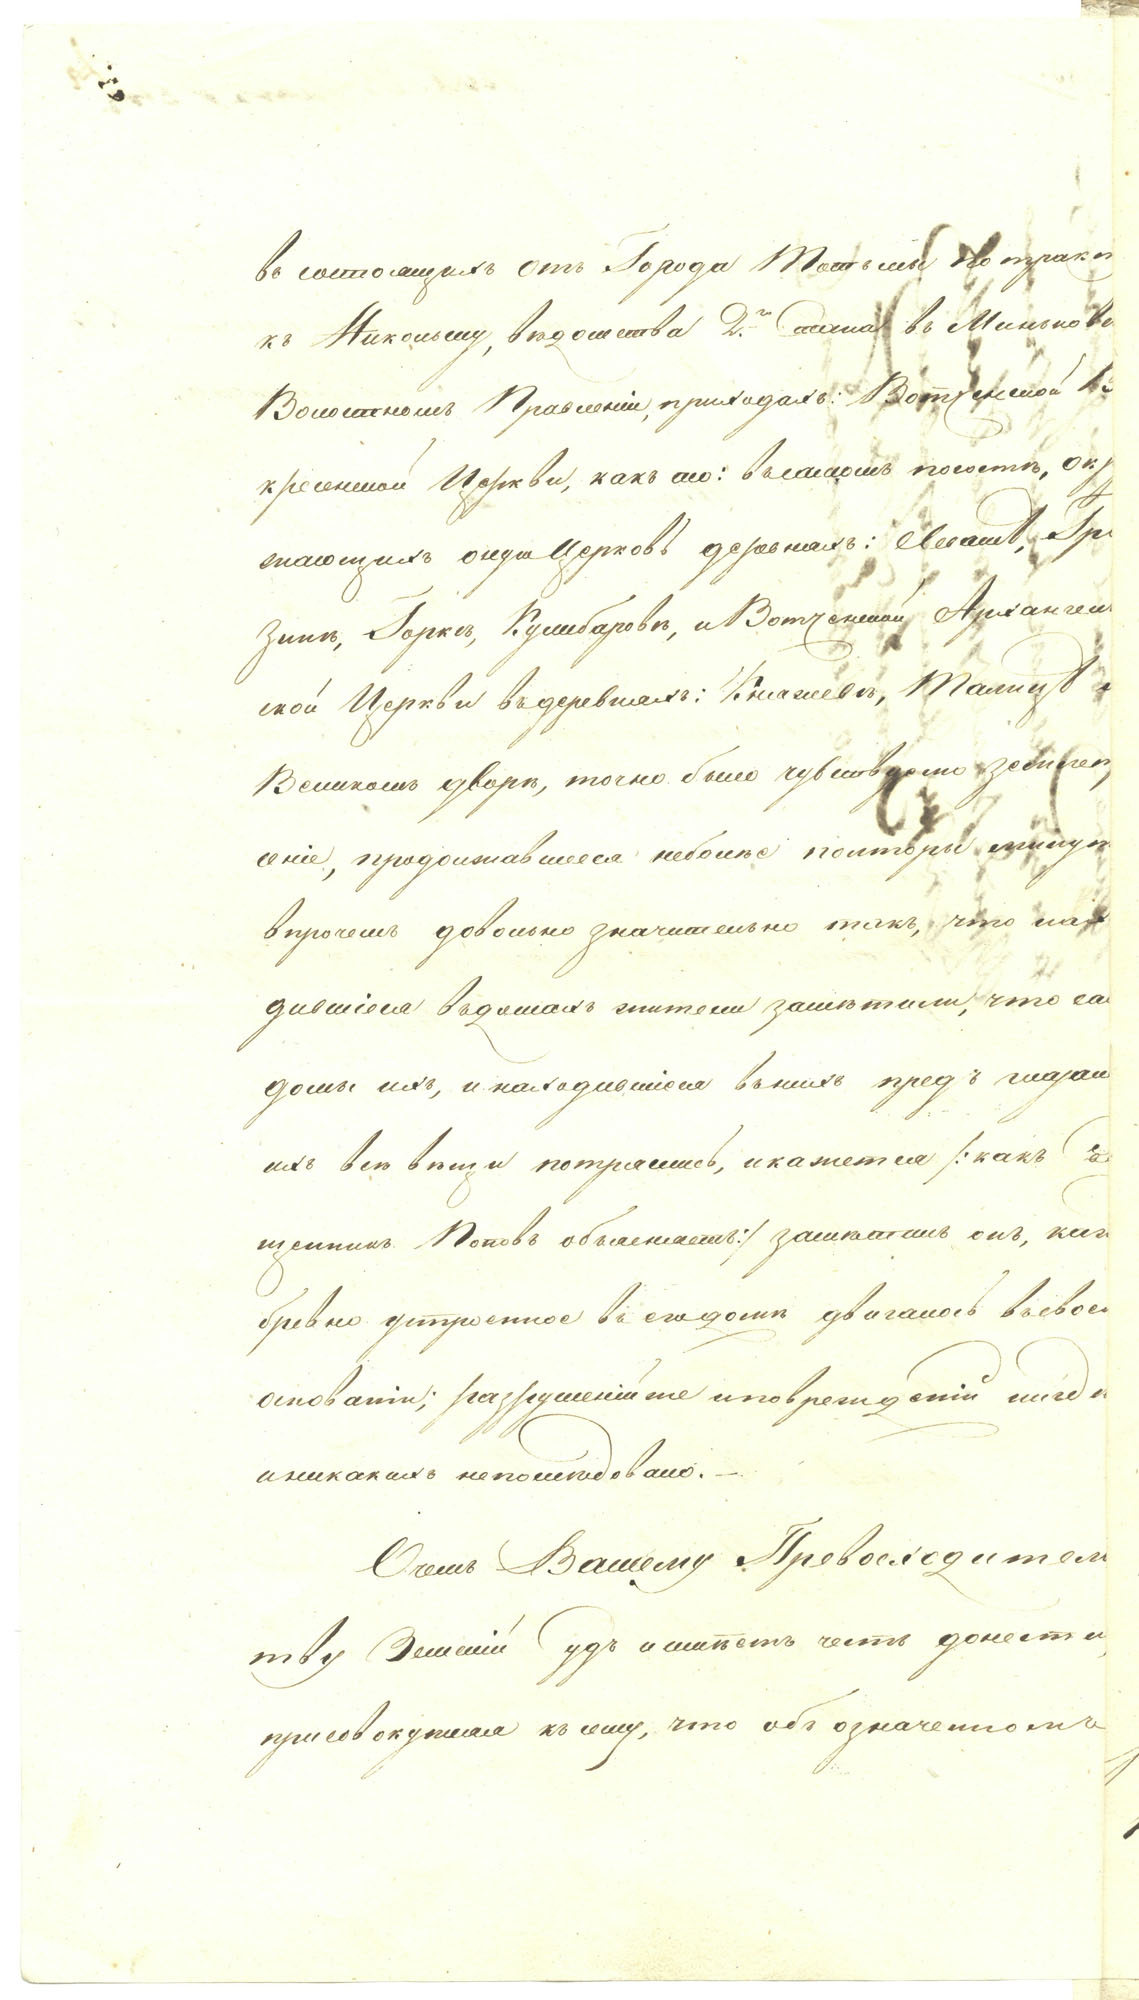 въ состоящихъ отъ Города Тотьмы по тракт
къ Никольску, вѣдомства 2.го Стана въ Миньковс
Волостномъ Правленіи, приходахъ: Вотченской Во
кресенской Церкви, какъ то: въ самомъ погостѣ, окр
жающихъ оную Церковь деревняхъ:
зинѣ, Горкѣ, Кулибаровѣ, и Вотченской Архангель
ской Церкви въ деревняхъ: Княжевѣ, Талицѣ и
Великомъ дворѣ, точно было чувствуемо землетр
сеніе, продолжавшееся неболѣе полторы минут
впрочемъ довольно значительно такъ, что нахо
дившіеся въ домахъ жители замѣтили, что са
домы ихъ, и находившіеся въ нихъ предъ глазам
ихъ всѣ вѣщи потряслись, и кажется /: какъ Свя
щенникъ Поповъ объясняетъ:/ замѣтилъ онъ, каж
бревно устроенное въ его домѣ двигалось въ свое
основаніи; разрушеній же и поврежденій нигдѣ
и никакихъ непослѣдовало. —
О чемъ Вашему Превосходительс
тву Земскій Судъ и имѣетъ честь донести,
присовокупляя къ сему, что объ означенномъ